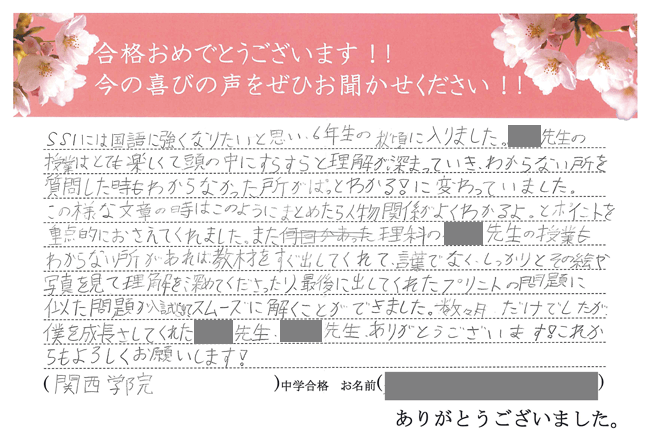 合格おめでとうございます!!
今の喜びの声をぜひお聞かせください!!
SSIには国語に強くなりたいと思い、6年生の秋頃に入りました。先生の
授業はとても楽しくて頭の中にすらすらと理解が深まっていき、わからない所を
質問した時もわからなかった所がぱっとわかる!に変わっていました。
この様な文章の時はこのようにまとめたら人物関係がよくわかるよ。とポイントを
重点的におさえてくれました。また理科の先生の授業も
わからない所があれば教材をすぐ出してくれて、言葉でなく、しっかりとその絵や
写真を見て理解を深めてくださったり、最後に出してくれたプリントの問題に
似た問題が入試でスムーズに解くことができました。数ヶ月だけでしたが
僕を成長させてくれた先生、先生、ありがとうございます!これか
らもよろしくお願いします!
(関西学院)中学合格 お名前()
ありがとうございました。